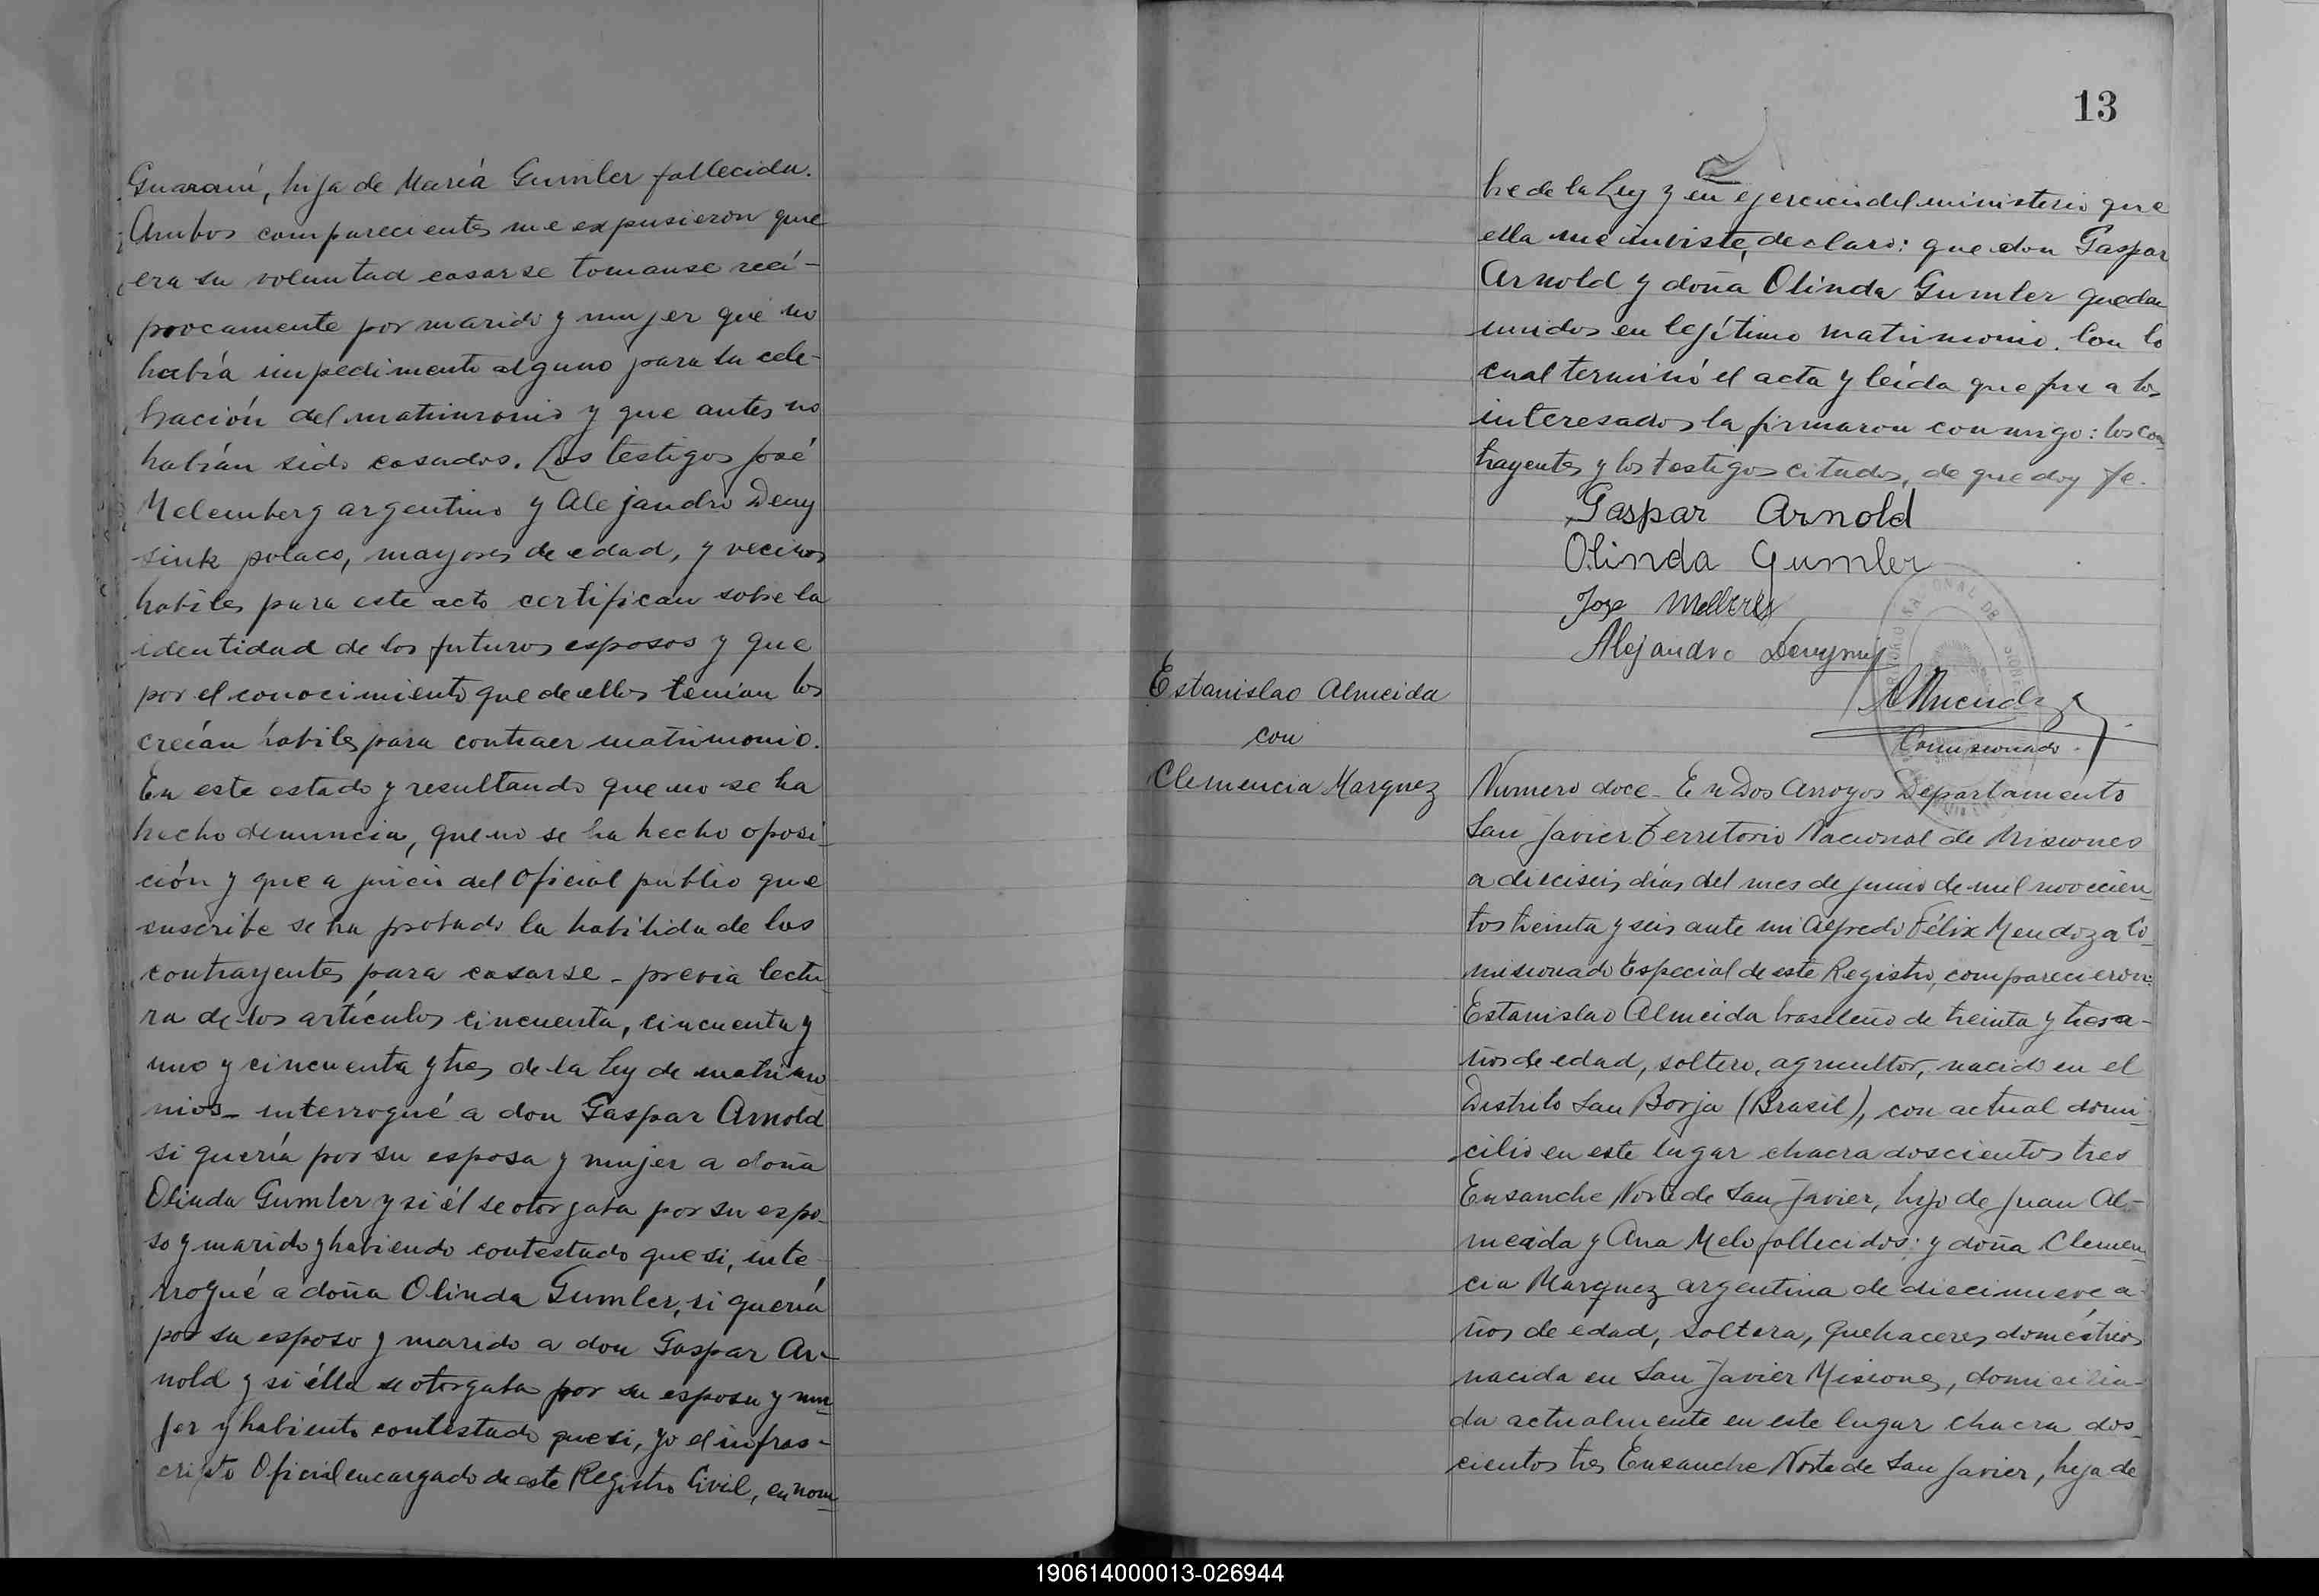 Guaraní, hija de María Gumler fallecida.
Ambos comparecientes me expusieron que
era su voluntad casarse tomanse recí-
procamente por marido y mujer que no
había impedimento alguno para la cele-
bración del matrimonio y que antes no
habían sido casados. Los testigos José
Melemberg argentino y Alejandro Deny
sink polaco, mayores de edad, y vecinos
habiles para este acto certifican sobre la
identidad de los futuros esposos y que
por el conocimiento que de ellos tenían los
creían habiles para contraer matrimonio.
En este estado y resultando que no se ha
hecho denuncia, que no se ha hecho oposi-
ción y que a juicio del Oficial publio que
suscribe se ha probado la habilida de los
contrayentes para casarse - previa lectu-
ra de los artículos cincuenta, cincuenta y
uno y cincuenta y tres de la Ley de matrimo
nios - interrogué a don Gaspar Arnold
si quería por su esposa y mujer a doña
Olinda Gumler y si él se otorgaba por su espo-
so y marido y habiendo contestado que si, inte-
rrogué a doña Olinda Gumler, si quería
por su esposo y marido a don Gaspar Ar-
nold y si élla se otorgaba por su esposa y mu-
jer y habiento contestado que si, yo el infras-
cripto Oficial encargado de este Registro Civil, en nom-
13
bre de la Ley y en ejercicio del ministerio que
ella me inviste, declaro: que don Gaspar
Arnold y doña Olinda Gumler quedan
unidos en legítimo matrimonio. Con lo
cual terminó el acta y leída que fue a los
interesados la firmaron conmigo: los con-
trayentes y los testigos citados, de que doy fe.
Gaspar Arnold
Olinda Gumler
Jose
Alejandro
Comisionado.
Estanislao Almeida
con
Clemencia Marquez
Numero doce - En Dos Arroyos Departamento
San Javier Territorio Nacional de Misiones
a dieciseis días del mes de junio de mil novecien-
tos treinta y seis ante mi Alfredo Félix Mendoza Co-
misionado Especial de este Registro, comparecieron:
Estanislao Almeida brasileño de treinta y tres a-
ños de edad, soltero, agricultor, nacido en el
Distrito San Borja (Brasil), con actual domi-
cilio en este lugar chacra doscientos tres
Ensanche Norte de San Javier, hijo de Juan Al-
meida y Ana Melo fallecidos: y doña Clemen-
cia Marquez argentina de diecinueve a-
ños de edad, soltera, quehaceres domésticos
nacida en San Javier Misiones, domicilia-
da actualmente en este lugar chacra dos-
cientos tres Ensanche Norte de San Javier, hija de
190614000013-026944